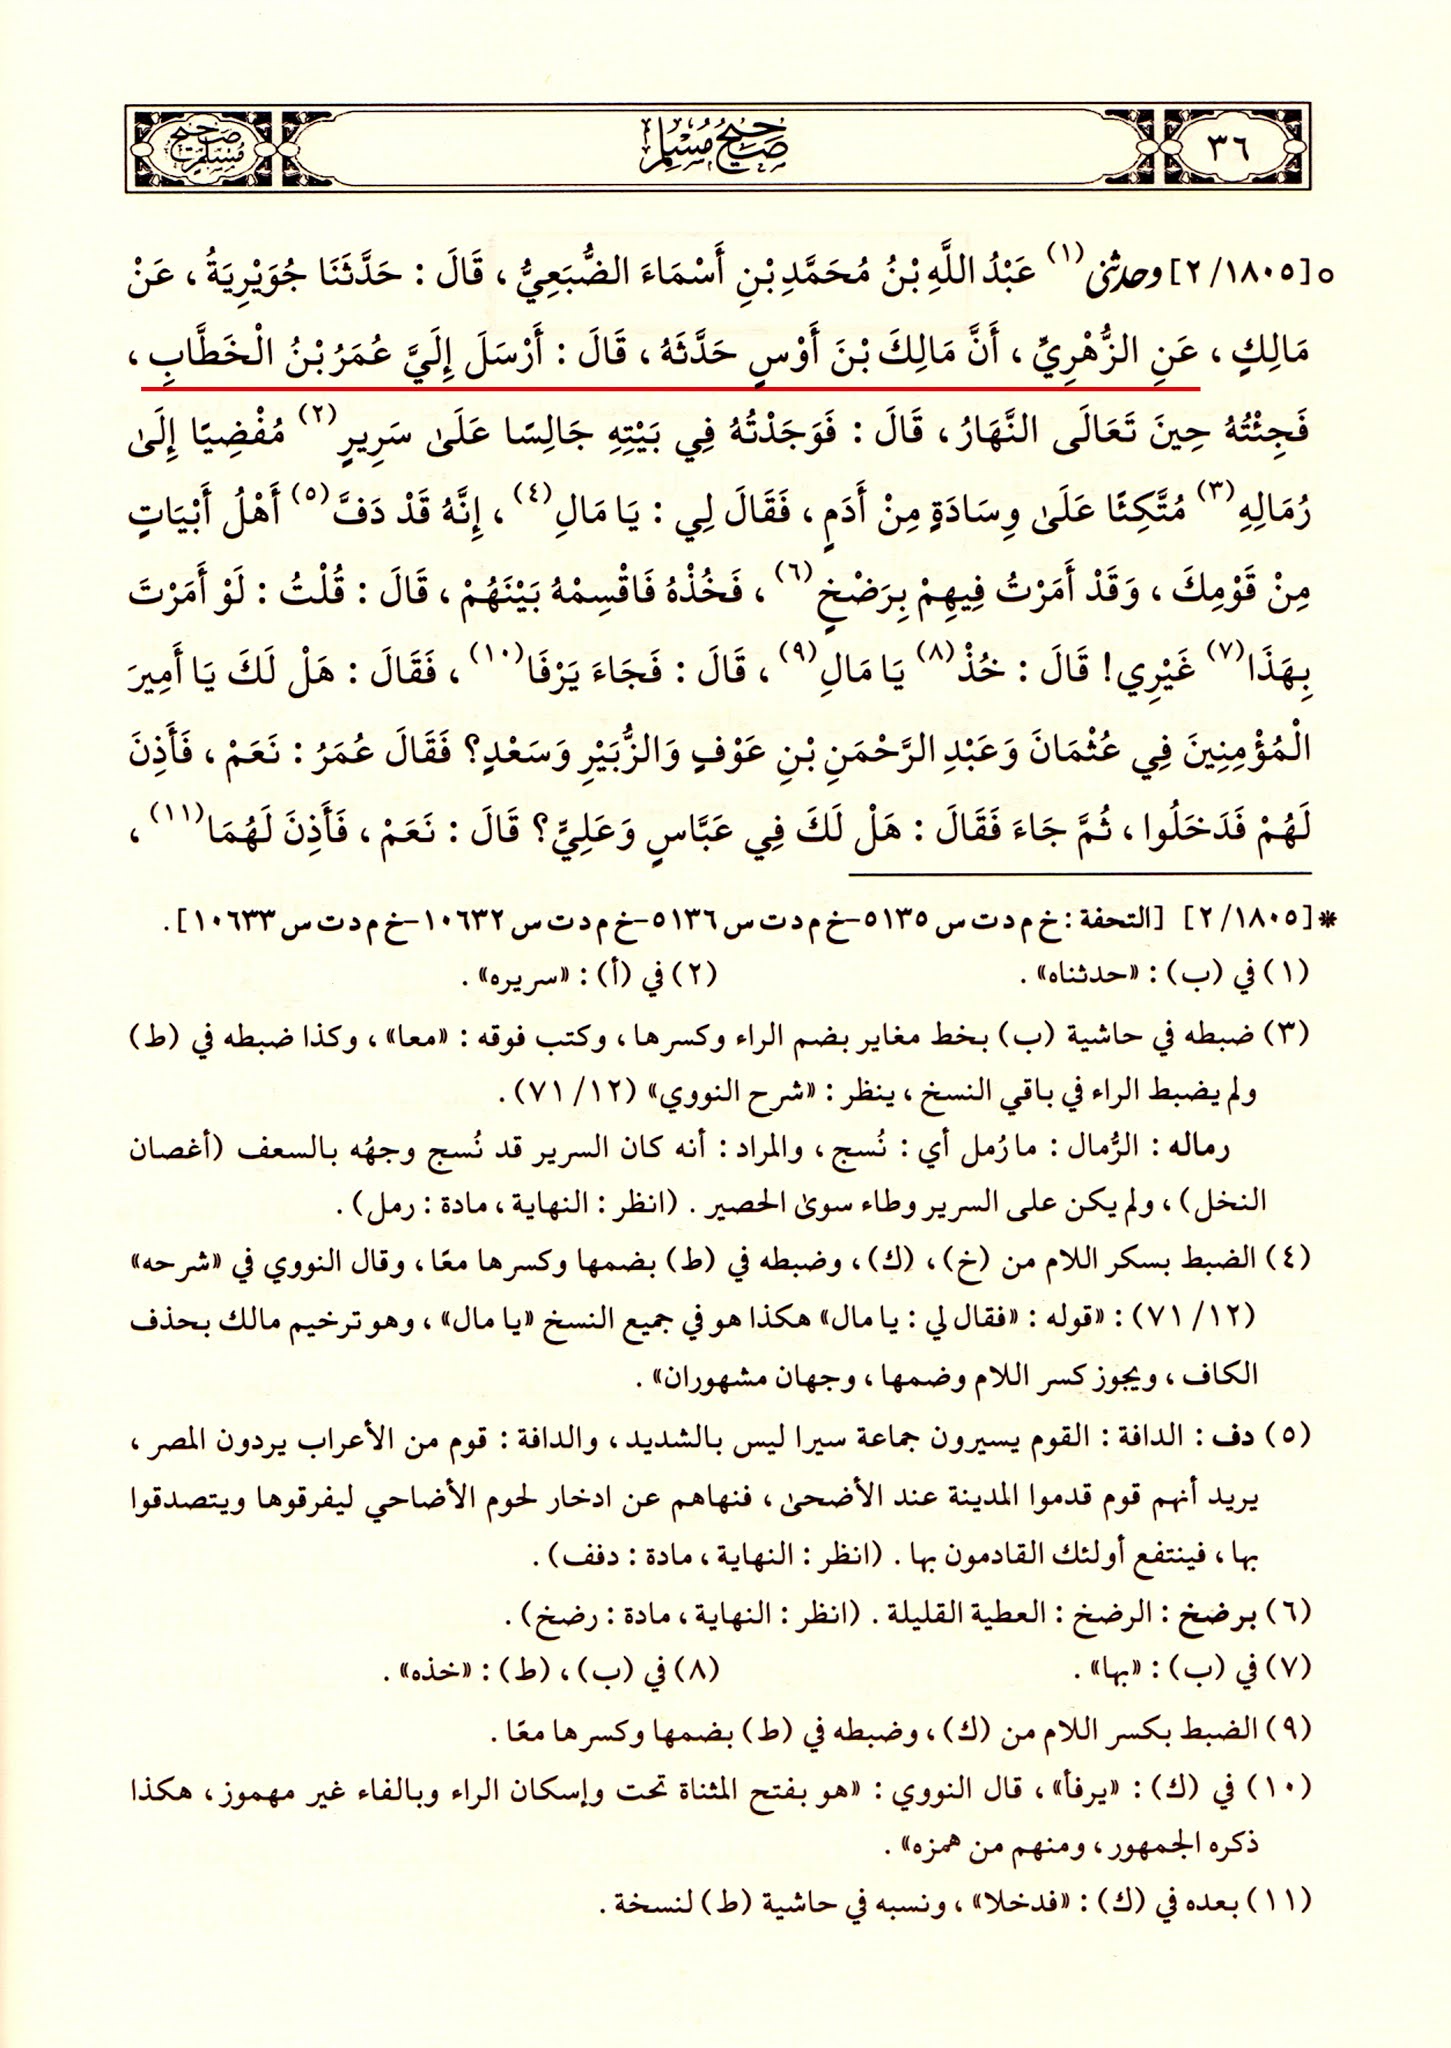 ٣٦
صحيح مسلم
صحيح مسلم
o [١٨٠٥/ ٢] وحدثني(١) عَبْدُ اللَّهِ بْنُ مُحَمَّدِ بْنِ أَسْمَاءَ الضُّبَعِيُّ ، قَالَ : حَدَّثَنَا جُوَيْرِيَةُ ، عَنْ
مَالِكٍ ، عَنِ الزُّهْرِيِّ ، أَنَّ مَالِكَ بْنَ أَوْسٍ حَدَّثَهُ ، قَالَ : أَرْسَلَ إِلَيَّ عُمَرُ بْنُ الْخَطَّابِ ،
فَجِئْتُهُ حِينَ تَعَالَى النَّهَارُ ، قَالَ : فَوَجَدْتُهُ فِي بَيْتِهِ جَالِسًا عَلَىٰ سَرِيرٍ(٢) مُفْضِيًا إِلَىٰ
رُمَالِهِ(٣) مُتَّكِئًا عَلَىٰ وِسَادَةٍ مِنْ أَدَمٍ ، فَقَالَ لِي : يَا مَالِ(٤) ، إِنَّهُ قَدْ دَفَّ(٥) أَهْلُ أَبْيَاتٍ
مِنْ قَوْمِكَ ، وَقَدْ أَمَرْتُ فِيهِمْ بِرَضْخٍ(٦) ، فَخُذْهُ فَاقْسِمْهُ بَيْنَهُمْ ، قَالَ : قُلْتُ : لَوْ أَمَرْتَ
بِهَذَا(٧) غَيْرِي! قَالَ : خُذْ(٨) يَا مَالِ(٩) ، قَالَ : فَجَاءَ يَرْفَا(١٠) ، فَقَالَ : هَلْ لَكَ يَا أَمِيرَ
الْمُؤْمِنِينَ فِي عُثْمَانَ وَعَبْدِ الرَّحْمَنِ بْنِ عَوْفٍ وَالزُّبَيْرِ وَسَعْدٍ؟ فَقَالَ عُمَرُ : نَعَمْ ، فَأَذِنَ
لَهُمْ فَدَخَلُوا ، ثُمَّ جَاءَ فَقَالَ : هَلْ لَكَ فِي عَبَّاسٍ وَعَلِيٍّ؟ قَالَ : نَعَمْ ، فَأَذِنَ لَهُمَا(١١) ،
* [١٨٠٥/ ٢] [التحفة : خ م د ت س ٥١٣٥-خ م د ت س ٥١٣٦-خ م د ت س ١٠٦٣٢-خ م د ت س ١٠٦٣٣] .
(١) في (ب) : «حدثناه» . (٢) في (أ) : «سريره» .
(٣) ضبطه في حاشية (ب) بخط مغاير بضم الراء وكسرها ، وكتب فوقه : «معا» ، وكذا ضبطه في (ط)
ولم يضبط الراء في باقي النسخ ، ينظر : «شرح النووي» (١٢/ ٧١) .
رماله : الرُّمال : ما رُمل أي : نُسج ، والمراد : أنه كان السرير قد نُسج وجهُه بالسعف (أغصان
النخل) ، ولم يكن على السرير وطاء سوىٰ الحصير . (انظر : النهاية ، مادة : رمل) .
(٤) الضبط بسكر اللام من (خ) ، (ك) ، وضبطه في (ط) بضمها وكسرها معًا ، وقال النووي في «شرحه»
(١٢/ ٧١) : «قوله : «فقال لي : يا مال» هكذا هو في جميع النسخ «يا مال» ، وهو ترخيم مالك بحذف
الكاف ، ويجوز كسر اللام وضمها ، وجهان مشهوران» .
(٥) دف : الدافة : القوم يسيرون جماعة سيرا ليس بالشديد ، والدافة : قوم من الأعراب يردون المصر ،
يريد أنهم قوم قدموا المدينة عند الأضحىٰ ، فنهاهم عن ادخار لحوم الأضاحي ليفرقوها ويتصدقوا
بها ، فينتفع أولئك القادمون بها . (انظر : النهاية ، مادة : دفف) .
(٦) برضخ : الرضخ : العطية القليلة . (انظر : النهاية ، مادة : رضخ) .
(٧) في (ب) : «بها» . (٨) في (ب) ، (ط) : «خذه» .
(٩) الضبط بكسر اللام من (ك) ، وضبطه في (ط) بضمها وكسرها معًا .
(١٠) في (ك) : «يرفأ» ، قال النووي : «هو بفتح المثناة تحت وإسكان الراء وبالفاء غير مهموز ، هكذا
ذكره الجمهور ، ومنهم من همزه» .
(١١) بعده في (ك) : «فدخلا» ، ونسبه في حاشية (ط) لنسخة .